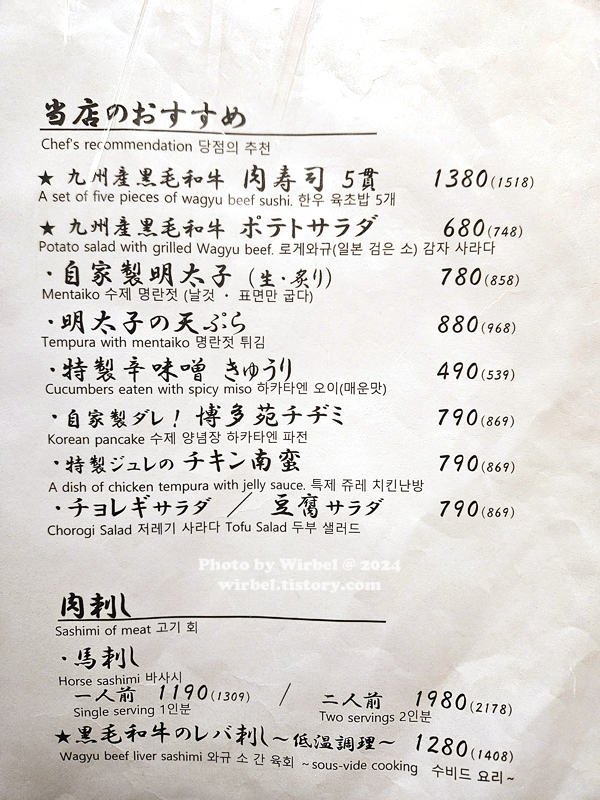 当店のおすすめ
Chef's recommendation 당점의 추천
★ 九州産黒毛和牛 肉寿司 5貫 1380(1518)
A set of five pieces of wagyu beef sushi. 한우 육초밥 5개
★ 九州産黒毛和牛 ポテトサラダ 680(748)
Potato salad with grilled Wagyu beef. 로게와규(일본 검은 소) 감자 사라다
・自家製明太子 (生・炙り) 780(858)
Mentaiko 수제 명란젓 (날것 · 표면만 굽다)
・明太子の天ぷら 880(968)
Tempura with mentaiko 명란젓 튀김
・特製辛味噌 きゅうり 490(539)
Cucumbers eaten with spicy miso 하카타엔 오이(매운맛)
・自家製ダレ! 博多苑チヂミ 790(869)
Korean pancake 수제 양념장 하카타엔 파전
・特製ジュレの チキン南蛮 790(869)
A dish of chicken tempura with jelly sauce. 특제 쥬레 치킨난방
・チョレギサラダ / 豆腐サラダ 790(869)
Chorogi Salad 저레기 사라다 Tofu Salad 두부 샐러드
Photo by Wirbel @ 2024
wirbel.tistory.com
肉刺し
Sashimi of meat 고기 회
・馬刺し
Horse sashimi 바사시
一人前 1190(1309) / 二人前 1980(2178)
Single serving 1인분 Two servings 2인분
★黒毛和牛のレバ刺し~低温調理~ 1280(1408)
Wagyu beef liver sashimi 와규 소 간 육회 ~sous-vide cooking 수비드 요리~